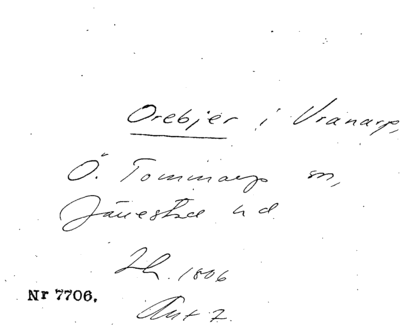 Orebjer i Vranarp,
Ö. Tommarp sn,
Järrestad hd
Lh. 1806
Nr 7706.
Ant 7.